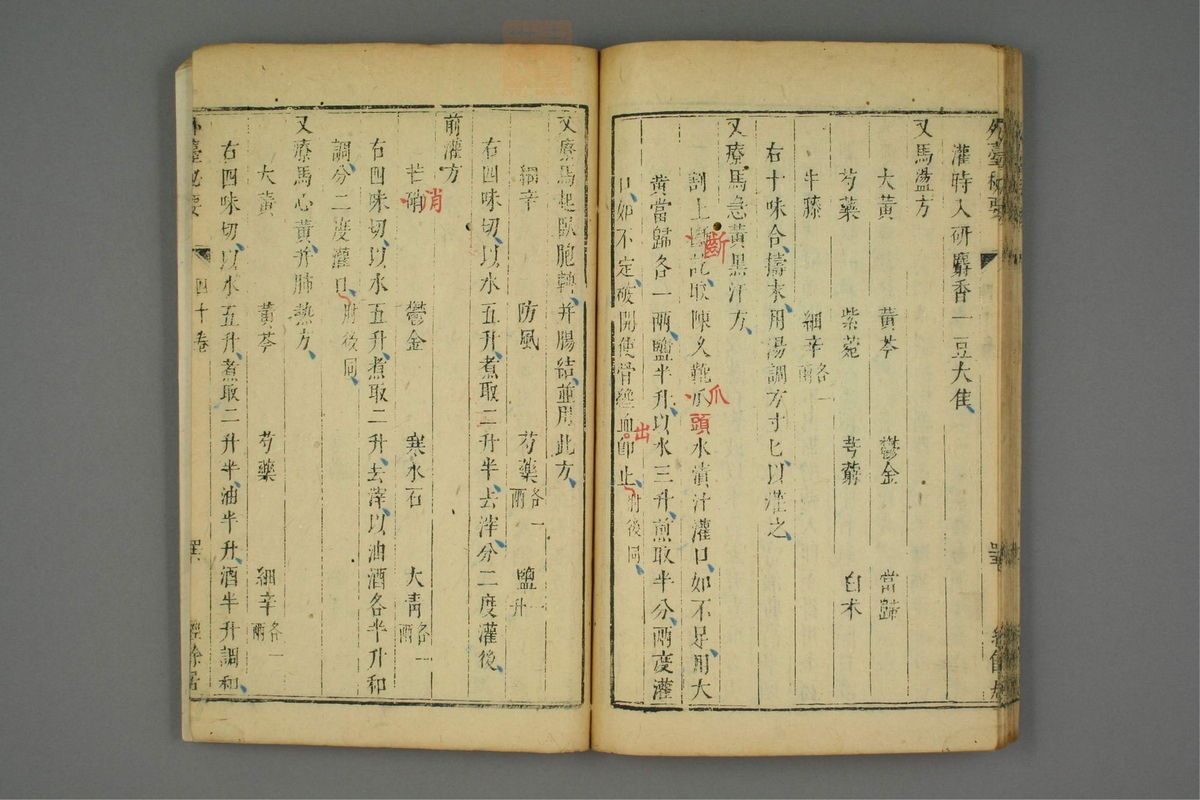 灌時入研麝香一豆大佳
又馬蛊方
大黃 黃芩 鬱金 當歸
芍藥 紫菀 芎藭 白朮
牛膝 細辛各一兩
右十味合擣末用湯調方寸匕以灌之
又療馬急黃黑汗方
割上斷訖取陳久靴爪頭水漬汁灌口如不足用大
黃當歸各一兩鹽半升以水三升煎取半分兩度灌
口如不定破開使骨絕血出即止附後同
又療馬起臥胞轉并腸結並用此方
細辛 防風 芍藥各一兩 鹽一升
右四味切以水五升煮取二升半去滓分二度灌後
前灌方
芒硝消 鬱金 寒水石 大青各一兩
右四味切以水五升煮取二升去滓以油酒各半升和
調分二度灌口附後同
又療馬心黃并肺熱方
大黃 黃芩 芍藥 細辛各一兩
右四味切以水五升煮取二升半油半升酒半升調和
外臺秘要 四十卷 經餘居